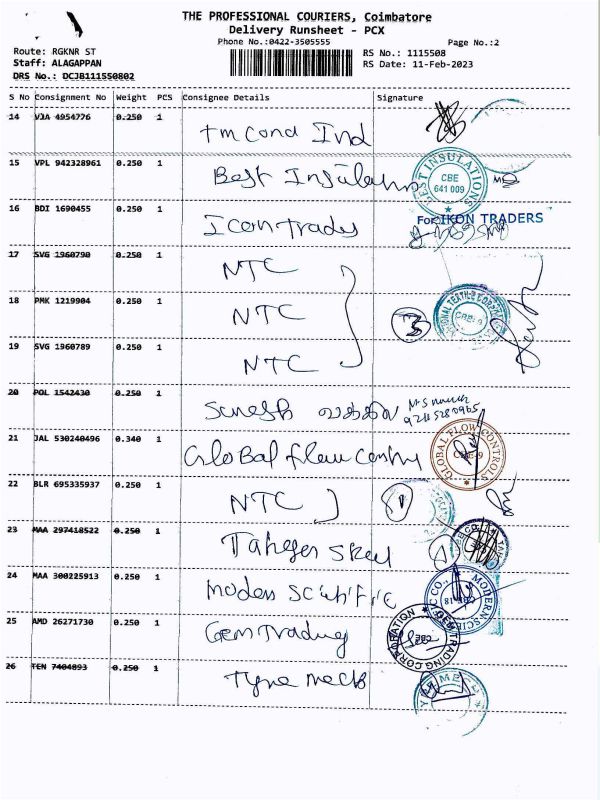 THE PROFESSIONAL COURIERS, Coimbatore
Delivery Runsheet - PCX
Phone No.:0422-3505555 Page No.:2
Route: RGKNR ST RS No.: 1115508
Staff: ALAGAPPAN RS Date: 11-Feb-2023
DRS No.: DCJB111550802
S No Consignment No Weight PCS Consignee Details Signature
14 VJA 4954776 0.250 1 Tm Cond Ind
15 VPL 942328961 0.250 1 Best Insulations
BEST INSULATIONS
CBE
641 009
16 BDI 1690455 0.250 1 Icon Trades
For IKON TRADERS
17 SVG 1960790 0.250 1 NTC
18 PMK 1219904 0.250 1 NTC 3
CBE-9
19 SVG 1960789 0.250 1 NTC
20 POL 1542430 0.250 1 Suresh
21 JAL 530240496 0.340 1 Global flow
GLOBAL FLOW CONTROLS
CBE-9
22 BLR 695335937 0.250 1 NTC 1
23 MAA 297418522 0.250 1
24 MAA 300225913 0.250 1 Modern
MODERN SCIE
25 AMD 26271730 0.250 1 Gem Trading
GEM TRADING CORPORATION
CBE
26 TEN 7404893 0.250 1